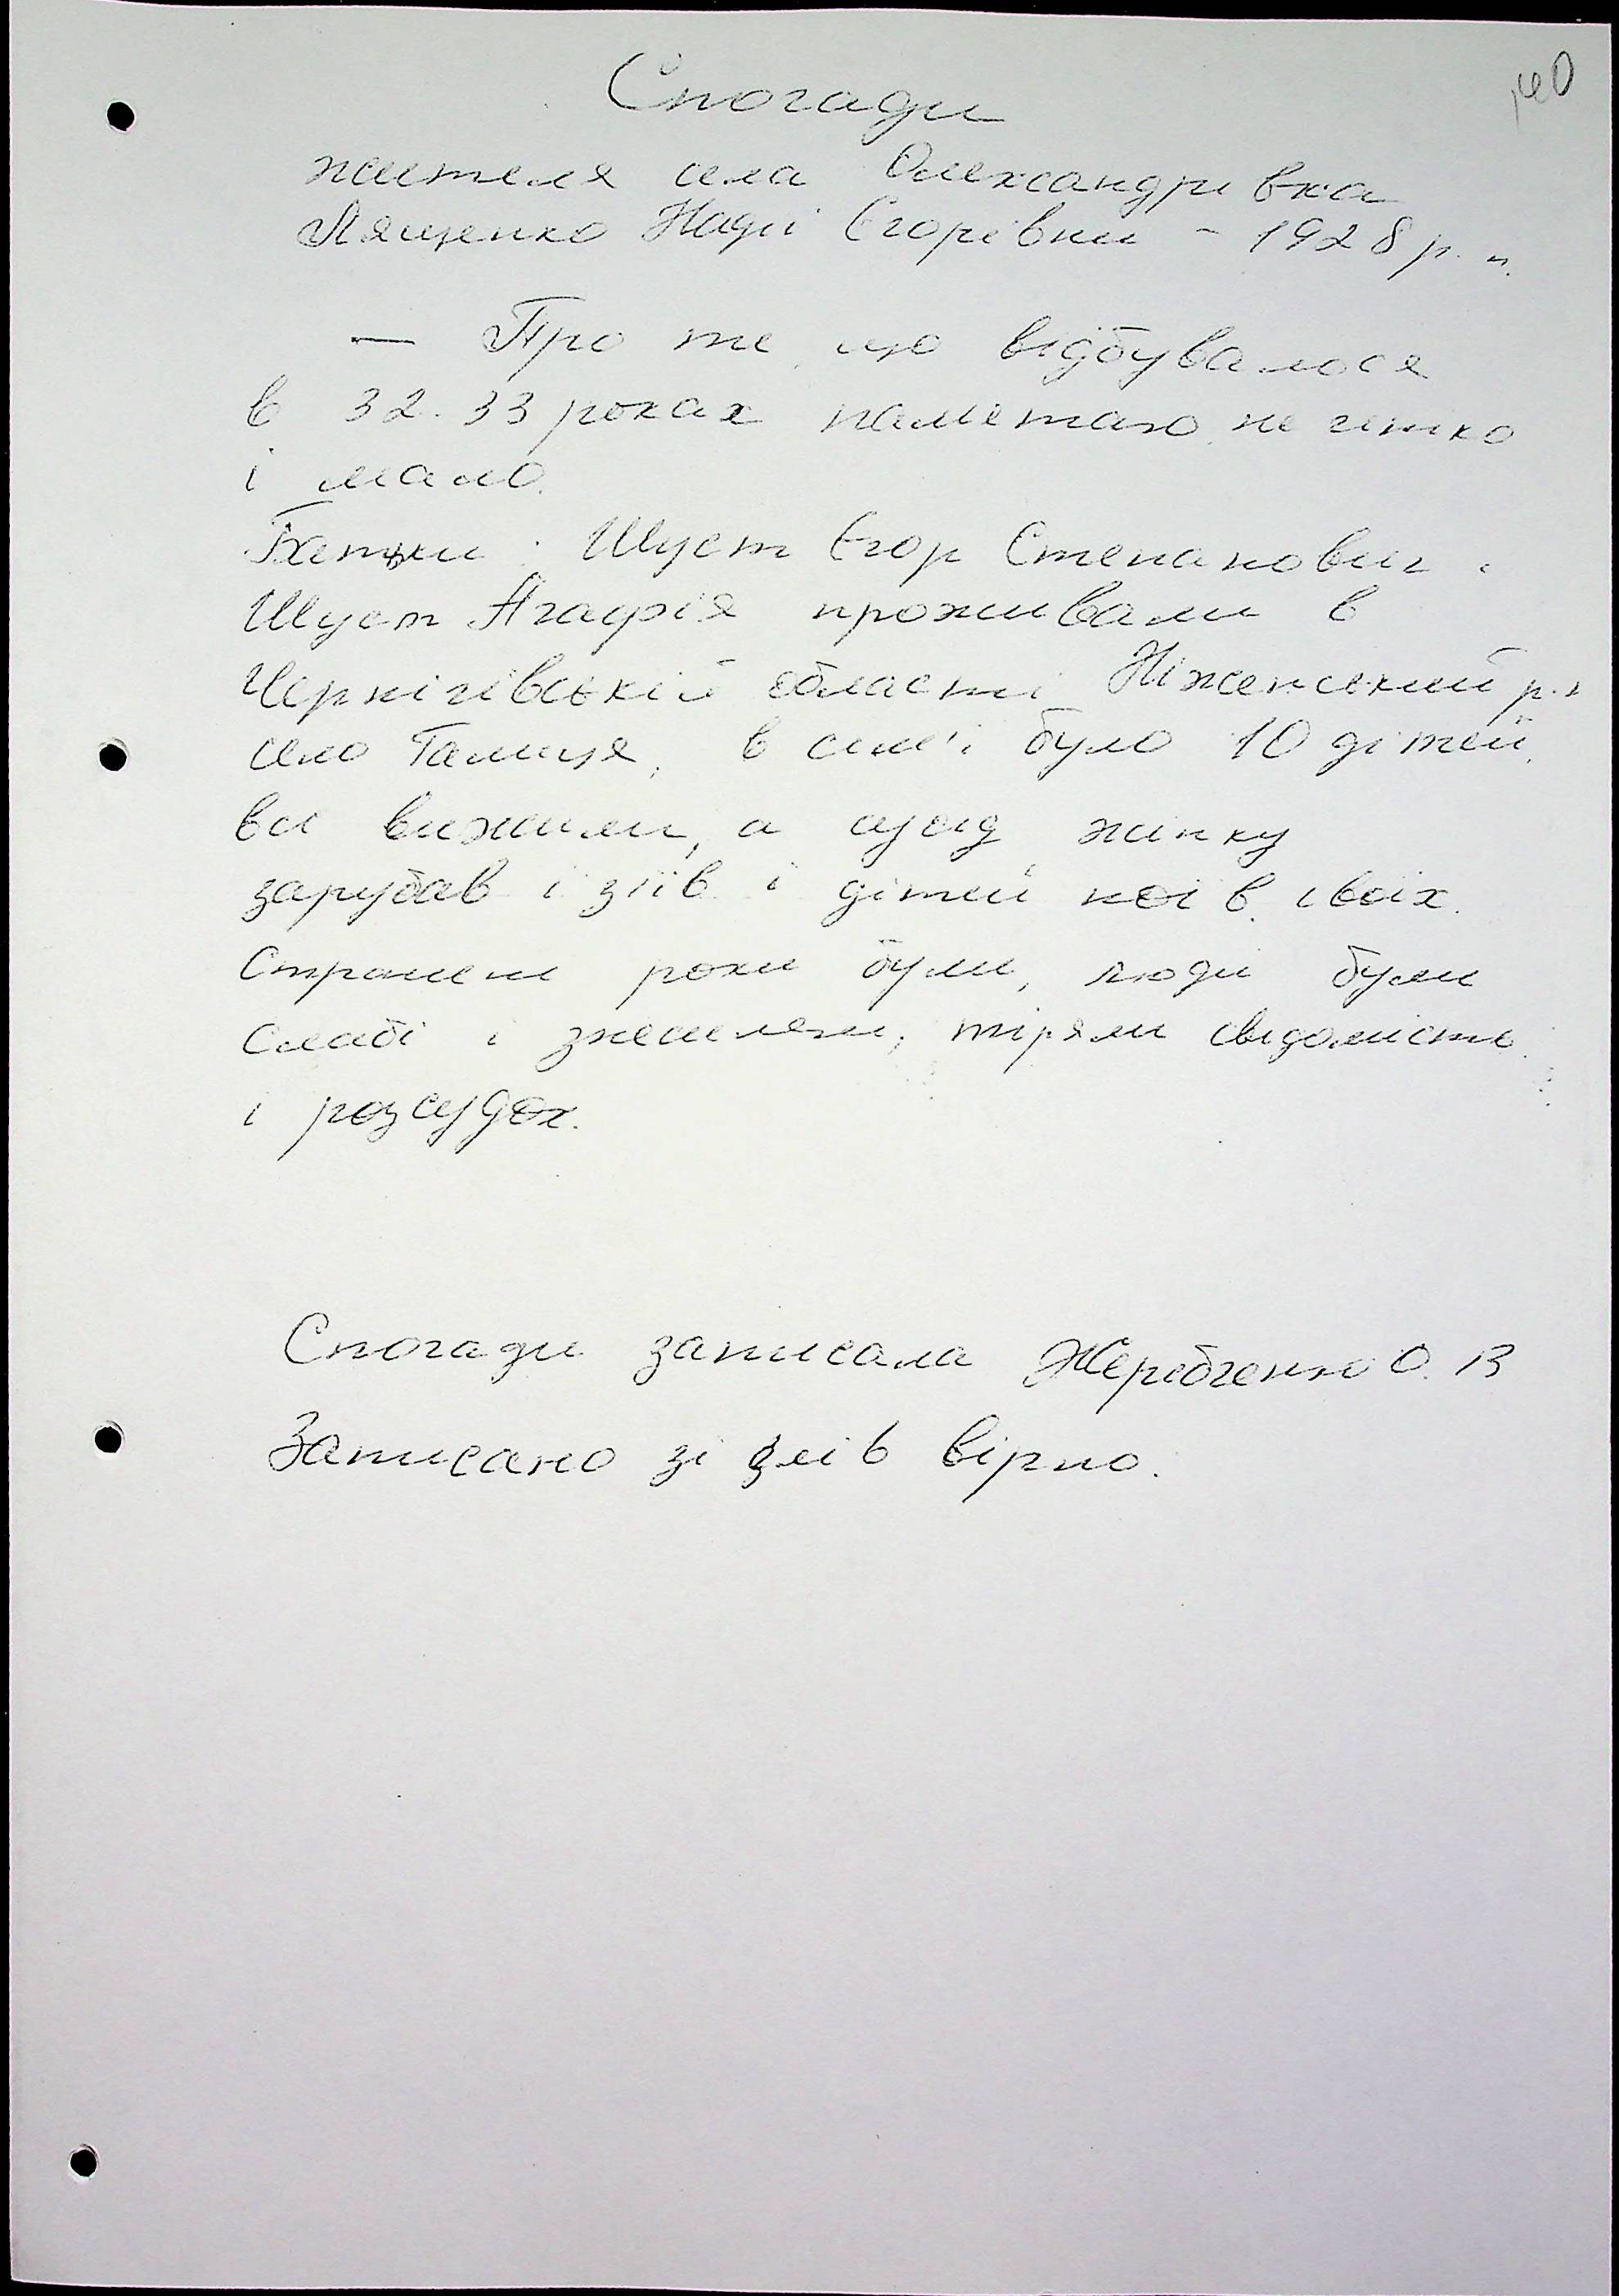 140
Спогади
жителя села Олександрівка
Лященко Надії Єгорівни - 1928 р. н.
— Про те, що відбувалося
в 32-33 роках памятаю не чітко
і мало.
Батьки: Шуст Єгор Степанович і
Шуст Агафія проживали в
Чернігівській області Ніженський р-н
село Галиця, в сім'ї було 10 дітей,
всі вижили, а сусід жінку
зарубав і з'їв і дітей поїв своїх.
Страшні роки були, люди були
слабі і знесилені, тіряли свідомість
і розсудок.
Спогади записала Жеребченко О. В
Записано зі слів вірно.